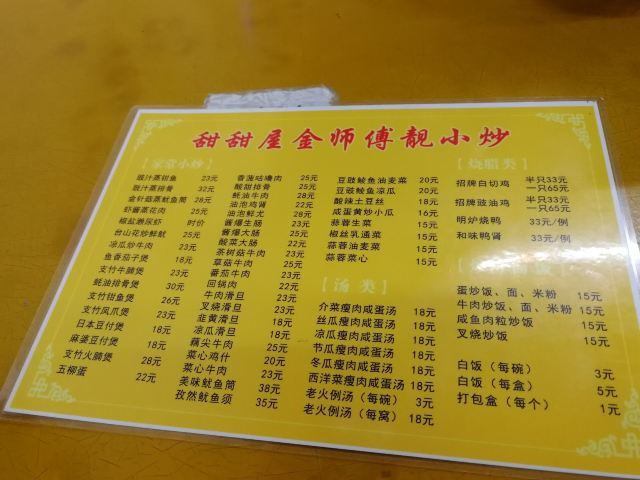 甜甜屋金师傅靓小炒
【家常小炒】
豉汁蒸甜鱼 23元
豉汁蒸排骨 32元
金针菇蒸鱿鱼筒 28元
虾酱蒸花肉 25元
椒盐濑尿虾 时价
台山花炒鲜鱿 25元
凉瓜炒牛肉 23元
鱼香茄子煲 18元
支竹牛腩煲 23元
蚝油排骨煲 30元
支竹甜鱼煲 26元
支竹凤爪煲 23元
日本豆付煲 18元
麻婆豆付煲 18元
支竹火腩煲 28元
五柳蛋 22元
香菠咕噜肉 25元
酸甜排骨 25元
蚝油牛肉 28元
油泡鸡肾 22元
油泡鲜尤 28元
酱爆生肠 23元
酱爆大肠 25元
酸菜大肠 22元
茶树菇牛肉 23元
草菇牛肉 25元
番茄牛肉 23元
回锅肉 22元
牛肉滑旦 23元
叉烧滑旦 23元
韭黄滑旦 18元
凉瓜滑旦 18元
藕尖牛肉 25元
菜心鸡什 20元
菜心牛肉 23元
美味鱿鱼筒 38元
孜然鱿鱼须 35元
豆豉鲮鱼油麦菜 20元
豆豉鲮鱼凉瓜 20元
酸辣土豆丝 18元
咸蛋黄炒小瓜 16元
蒜蓉生菜 15元
椒丝乳通菜 15元
蒜蓉油麦菜 15元
蒜蓉菜心 15元
【汤类】
介菜瘦肉咸蛋汤 18元
丝瓜瘦肉咸蛋汤 18元
凉瓜瘦肉咸蛋汤 18元
节瓜瘦肉咸蛋汤 18元
冬瓜瘦肉咸蛋汤 18元
西洋菜瘦肉咸蛋汤 18元
老火例汤（每碗） 3元
老火例汤（每窝） 18元
【烧腊类】
招牌白切鸡 半只33元
一只65元
招牌豉油鸡 半只33元
一只65元
明炉烧鸭 33元/例
和味鸭肾 33元/例
蛋炒饭、面、米粉 15元
牛肉炒饭、面、米粉 15元
咸鱼肉粒炒饭 15元
叉烧炒饭 15元
白饭（每碗） 3元
白饭（每盒） 5元
打包盒（每个） 1元